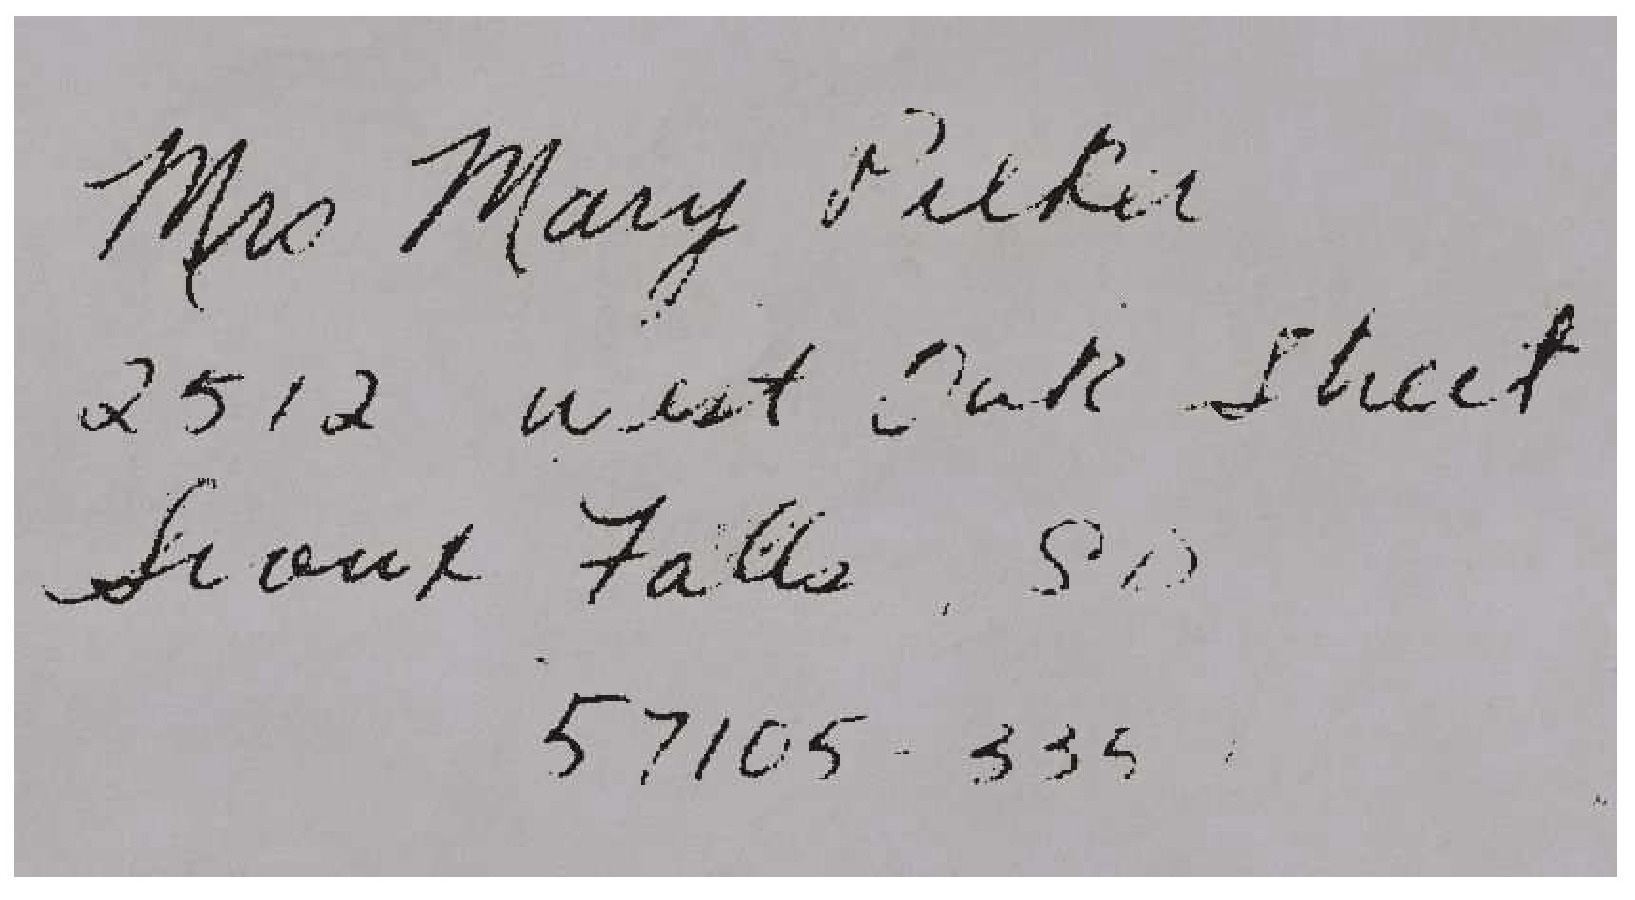 Mrs Mary Pecker
2512 west Oak Street
Sioux Falls, SD
57105-335